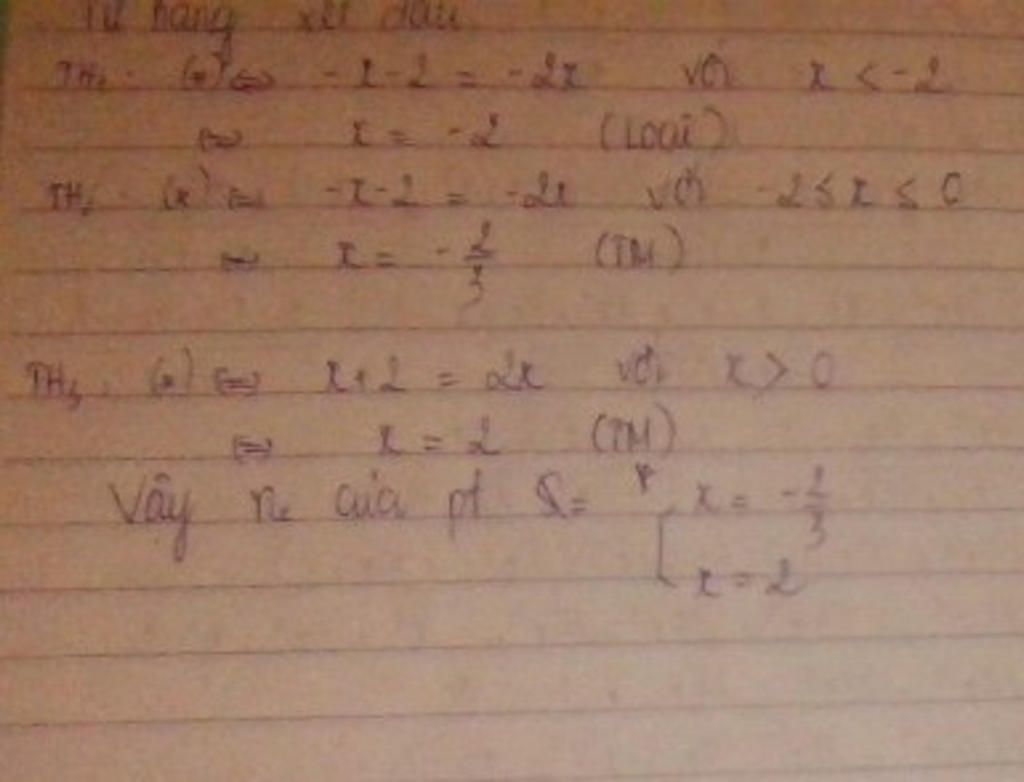 Từ bảng xét dấu
TH₁: (*) ⇔ -x-2 = -2x với x < -2
⇔ x = -2 (Loại)
TH₂: (*) ⇔ -x-2 = -2x với -2 ≤ x ≤ 0
⇔ x = -2/3 (TM)
TH₃: (*) ⇔ x+2 = 2x với x > 0
⇔ x = 2 (TM)
Vậy n₀ của pt S = [ x = -2/3
x = 2